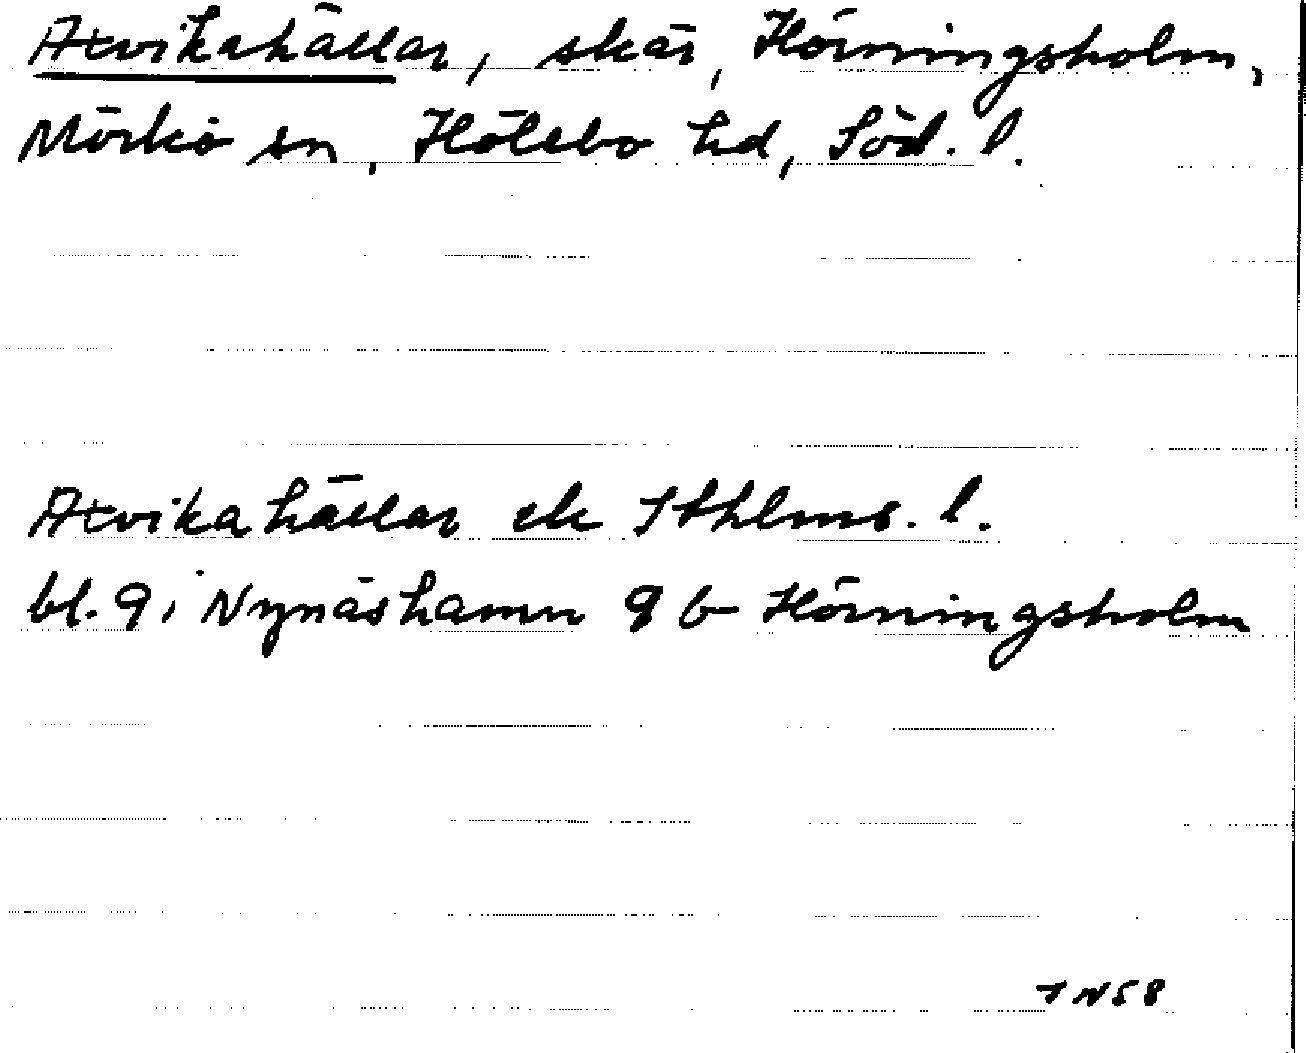 Atvikahällar, skär, Hörningsholm,
Mörkö sn, Hölebo hd, Söd. l.
Atvikahällar ek Sthlms. l.
bl. 9, Nynäshamn 9 b Hörningsholm
TN58